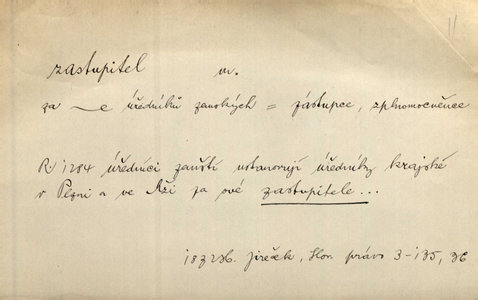 11
zastupitel m.
za ~e úředníků zemských = zástupce, zplnomocněnce
R. 1284 úředníci zemští ustanovují úředníky krajské
v Plzni a ve Mži za své zastupitele...
Jireček, Slov. právo 3-135, 36